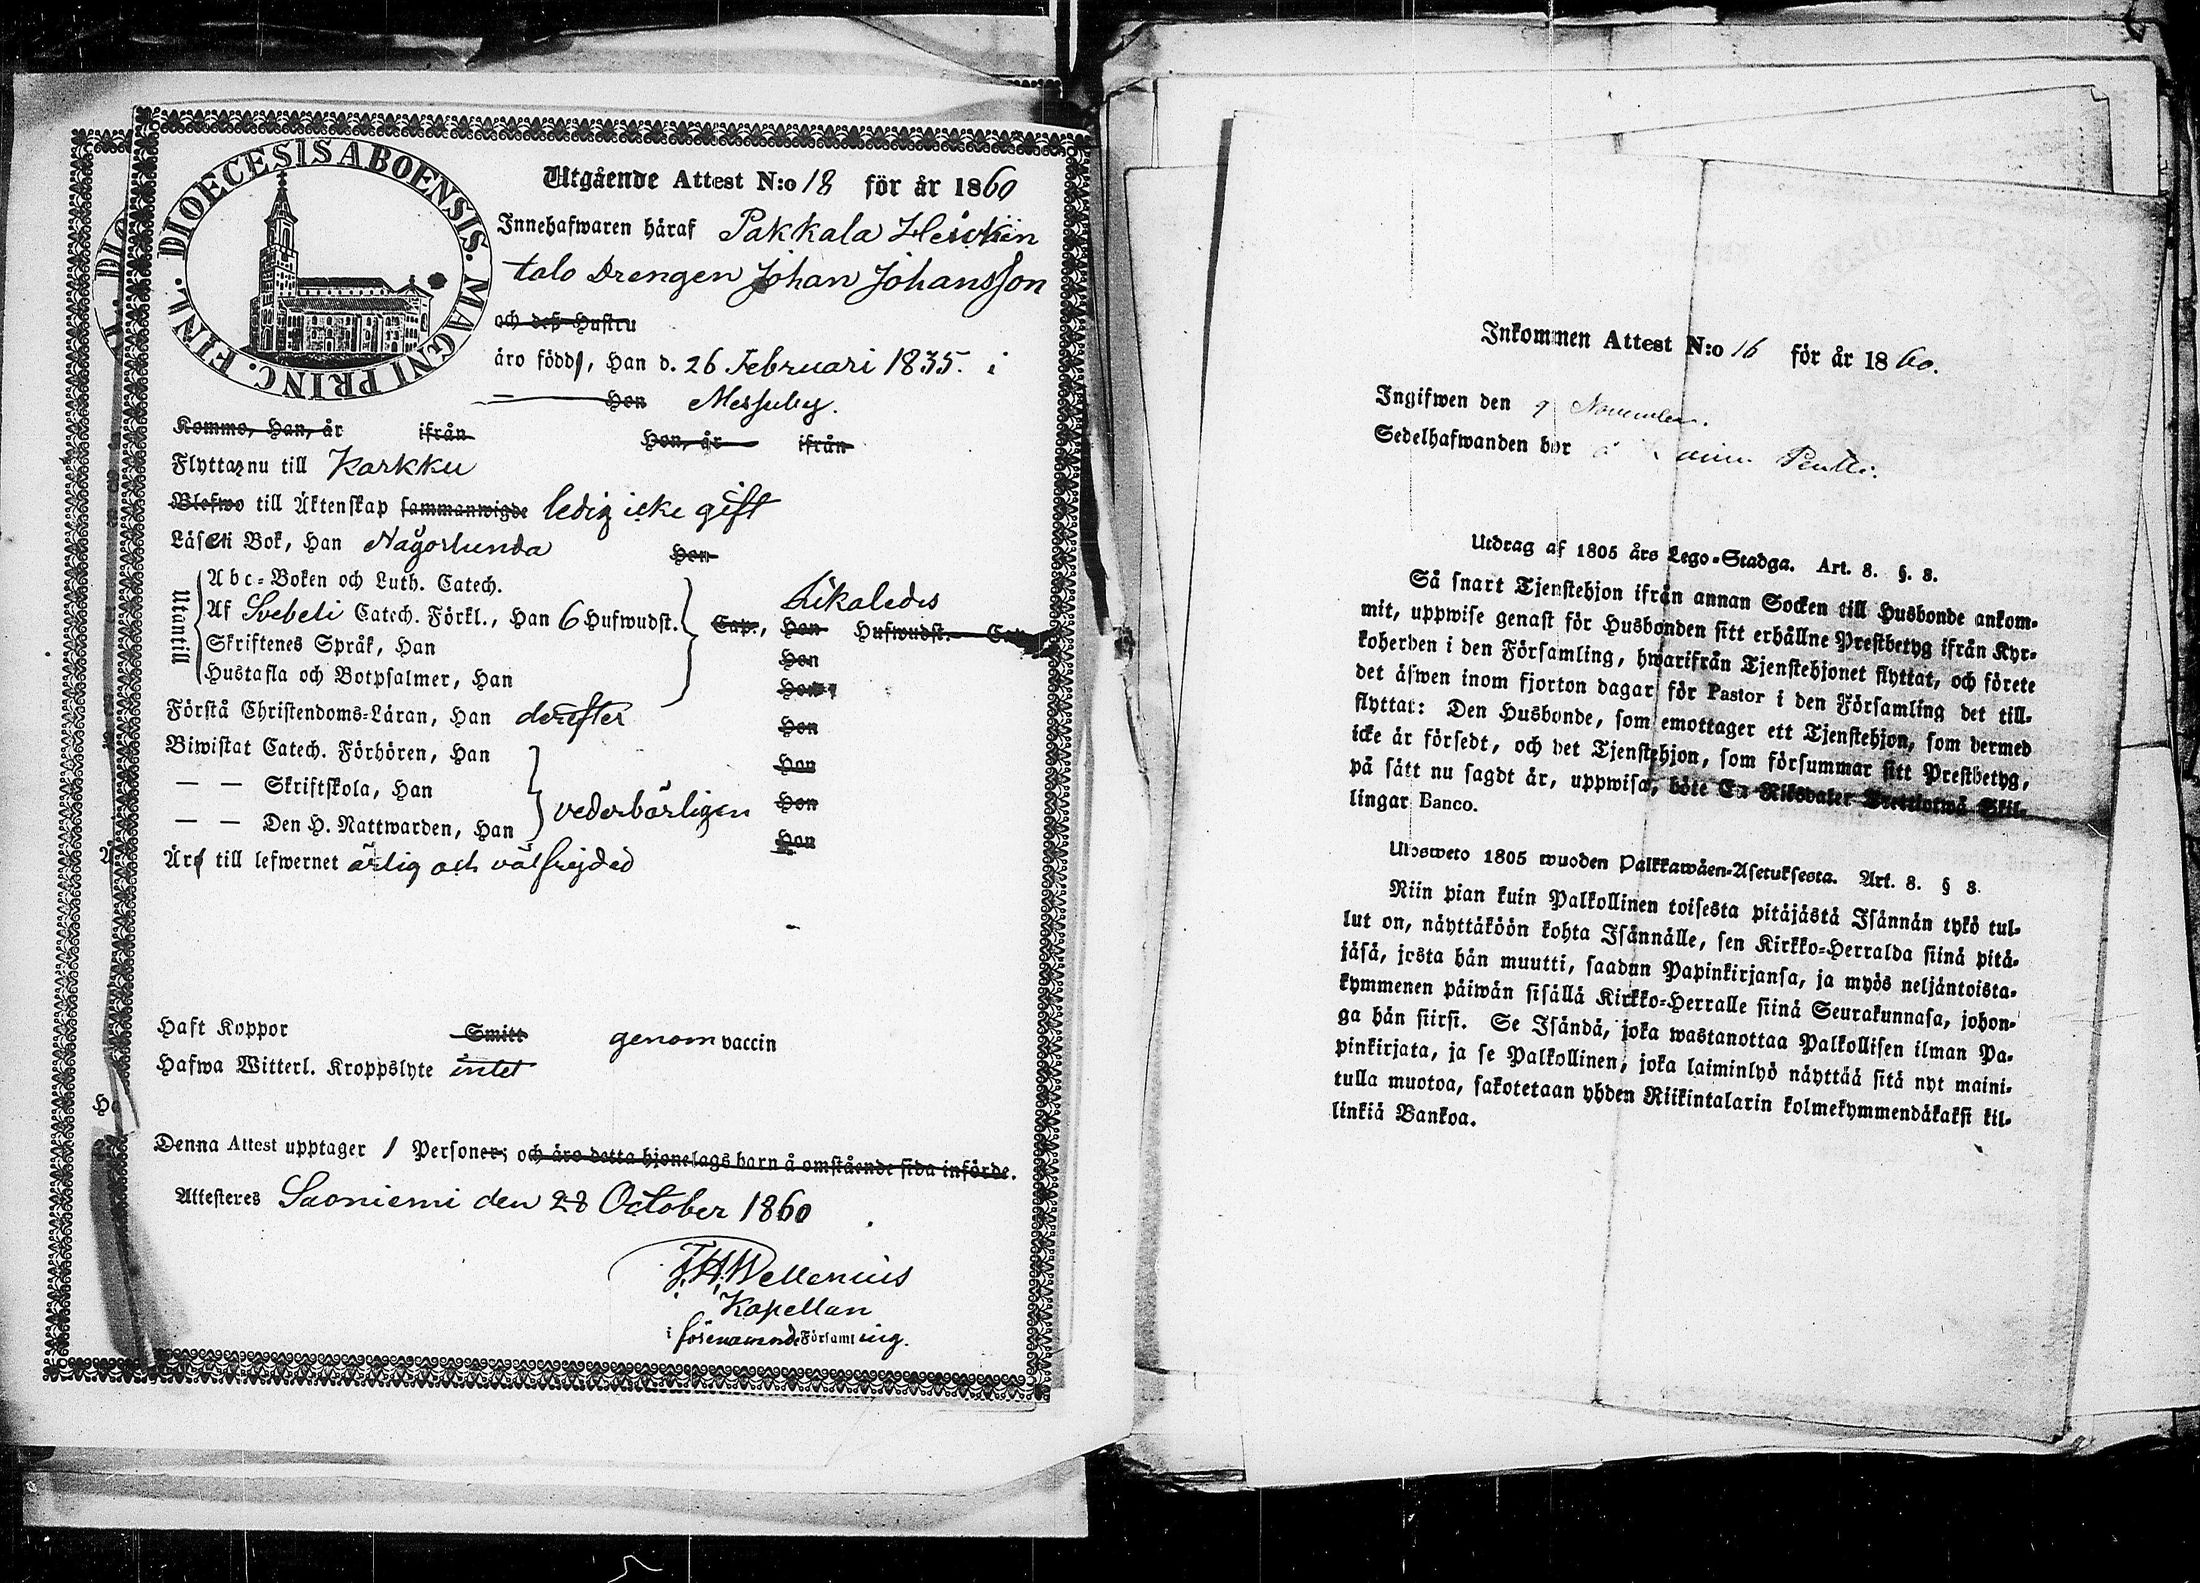 DIOECESIS ABOENSIS. MAGNI PRINC. FINL.
Utgående Attest N:o 18 för år 1860
Innehafwaren häraf Pakkala Heikkin
talo Drengen Johan Johansson
och deß Hustru
äro födde, Han d. 26 Februari 1835. i
Hon Messuby.
Kommo, Han, år ifrån Hon, år ifrån
Flyttar nu till Karkku
Blefwo till Äktenskap sammanwigde ledig icke gift
Läser i Bok, Han Någorlunda Hon
Utantill
Abc-Boken och Luth. Catech.
Af Svebeli Catech. Förkl., Han 6 Hufwudst. Cap., Hon Hufwudst. Cap.
Likaledes
Skriftenes Språk, Han Hon
Hustafla och Botpsalmer, Han Hon
Förstå Christendoms-Läran, Han derefter Hon
Biwistat Catech. Förhören, Han Hon
— — Skriftskola, Han vederbörligen Hon
— — Den H. Nattwarden, Han Hon
Är till lefwernet ärlig och välfrejdad
Haft Koppor Smitt genom vaccin
Hafwa Witterl. Kroppslyte intet
Denna Attest upptager 1 Personer; och äro detta hjonelags barn å omstående sida införde.
Attesteres Suoniemi den 28 October 1860
J. H. Wellenius
Kapellan
i förenämnde Församling.
Inkommen Attest N:o 16 för år 1860.
Ingifwen den 9 November.
Sedelhafwanden bor Pentti.
Utdrag af 1805 års Lego-Stadga. Art. 8. §. 8.
Så snart Tjenstehjon ifrån annan Socken till Husbonde ankom-
mit, uppwise genast för Husbonden sitt erhållne Prestbetyg ifrån Kyr-
koherden i den Församling, hwarifrån Tjenstehjonet flyttat, och förete
det äfwen inom fjorton dagar för Pastor i den Församling det till-
flyttat: Den Husbonde, som emottager ett Tjenstehjon, som dermed
icke är försedt, och det Tjenstehjon, som försummar sitt Prestbetyg,
på sätt nu sagdt är, uppwisa, böte En Riksdaler Trettiotwå Skil-
lingar Banco.
Ulosweto 1805 wuoden Palkkawäen-Asetuksesta. Art. 8. § 8.
Niin pian kuin Palkollinen toisesta pitäjästä Isännän tykö tul-
lut on, näyttäköön kohta Isännälle, sen Kirkko-Herralda siinä pitä-
jäsä, josta hän muutti, saadun Papinkirjansa, ja myös neljäntoista-
kymmenen päiwän sisällä Kirkko-Herralle siinä Seurakunnasa, johon-
ga hän siirsi. Se Isändä, joka wastanottaa Palkollisen ilman Pa-
pinkirjata, ja se Palkollinen, joka laiminlyö näyttää sitä nyt maini-
tulla muotoa, sakotetaan yhden Riikintalarin kolmekymmendäkaksi kil-
linkiä Bankoa.